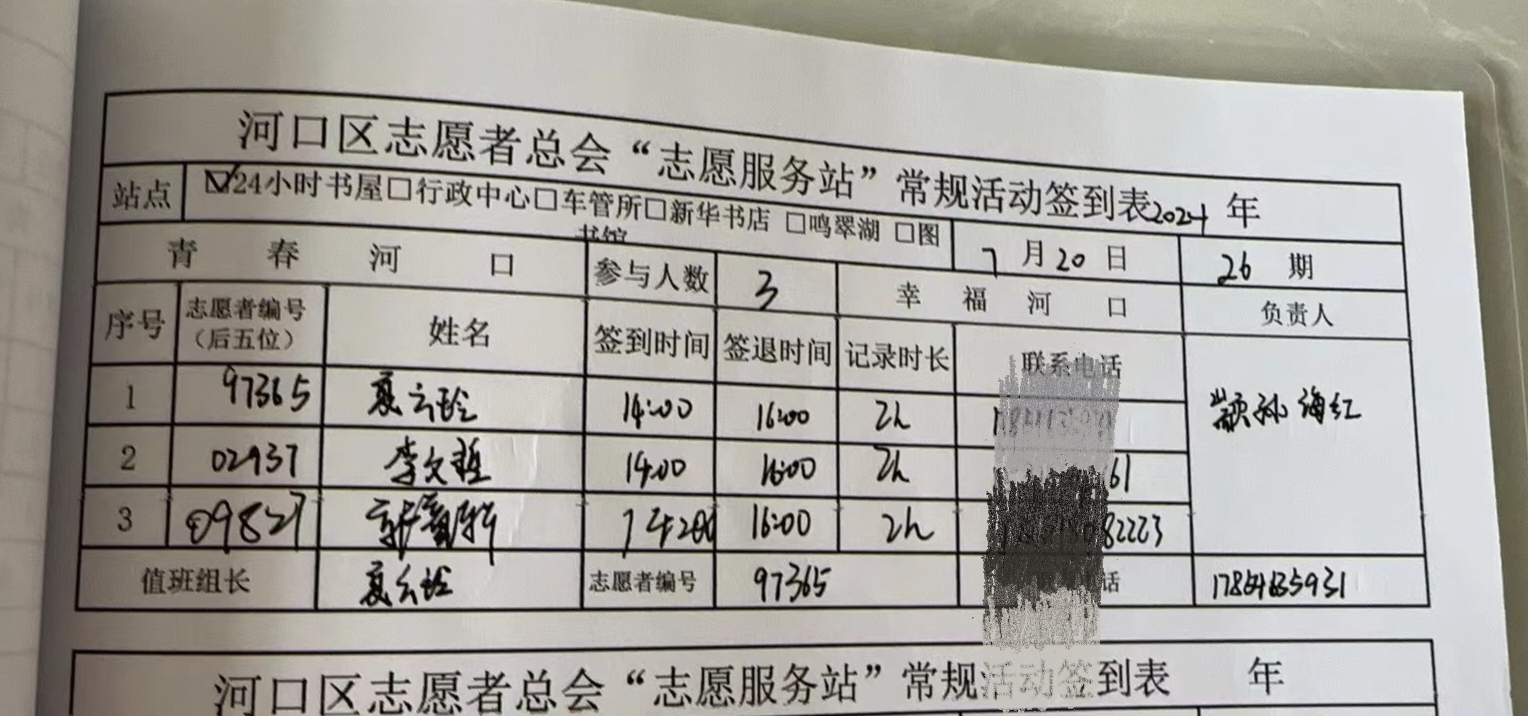 河口区志愿者总会“志愿服务站”常规活动签到表2024年
站点 ☑24小时书屋□行政中心□车管所□新华书店 □鸣翠湖 □图书馆 7月20日 26期
青春河口 参与人数 3 幸福河口 负责人
序号 志愿者编号（后五位） 姓名 签到时间 签退时间 记录时长 联系电话
1 97365 夏云玲 14:00 16:00 2h
2 02937 李文 14:00 16:00 2h 61
3 09827 16:00 2h 82223
海红
值班组长 夏云玲 志愿者编号 97365 话
河口区志愿者总会“志愿服务站”常规活动签到表 年